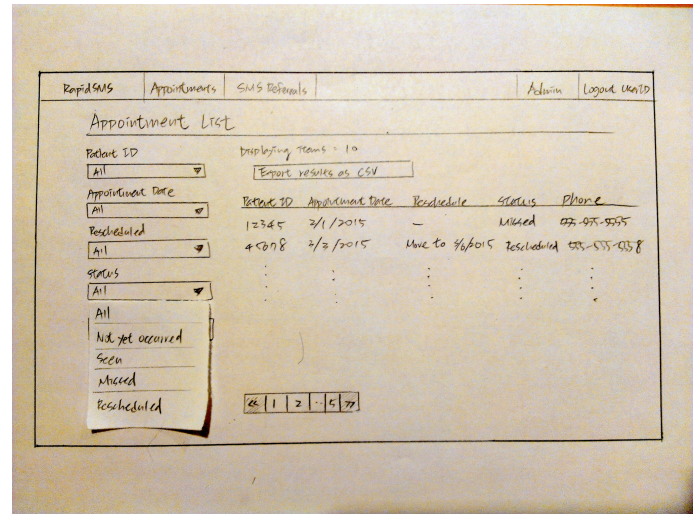 RapidSMS Appointments SMS Referrals Admin Logout UserID
Appointment List
Patient ID
All
Appointment Date
All
Rescheduled
All
Status
All
All
Not yet occurred
Seen
Missed
Rescheduled
Displaying Items = 10
Export results as CSV
Patient ID Appointment Date Reschedule Status Phone
12345 2/1/2015 – Missed
45678 2/2/2015 Move to Rescheduled
« 1 2 ·· 5 »